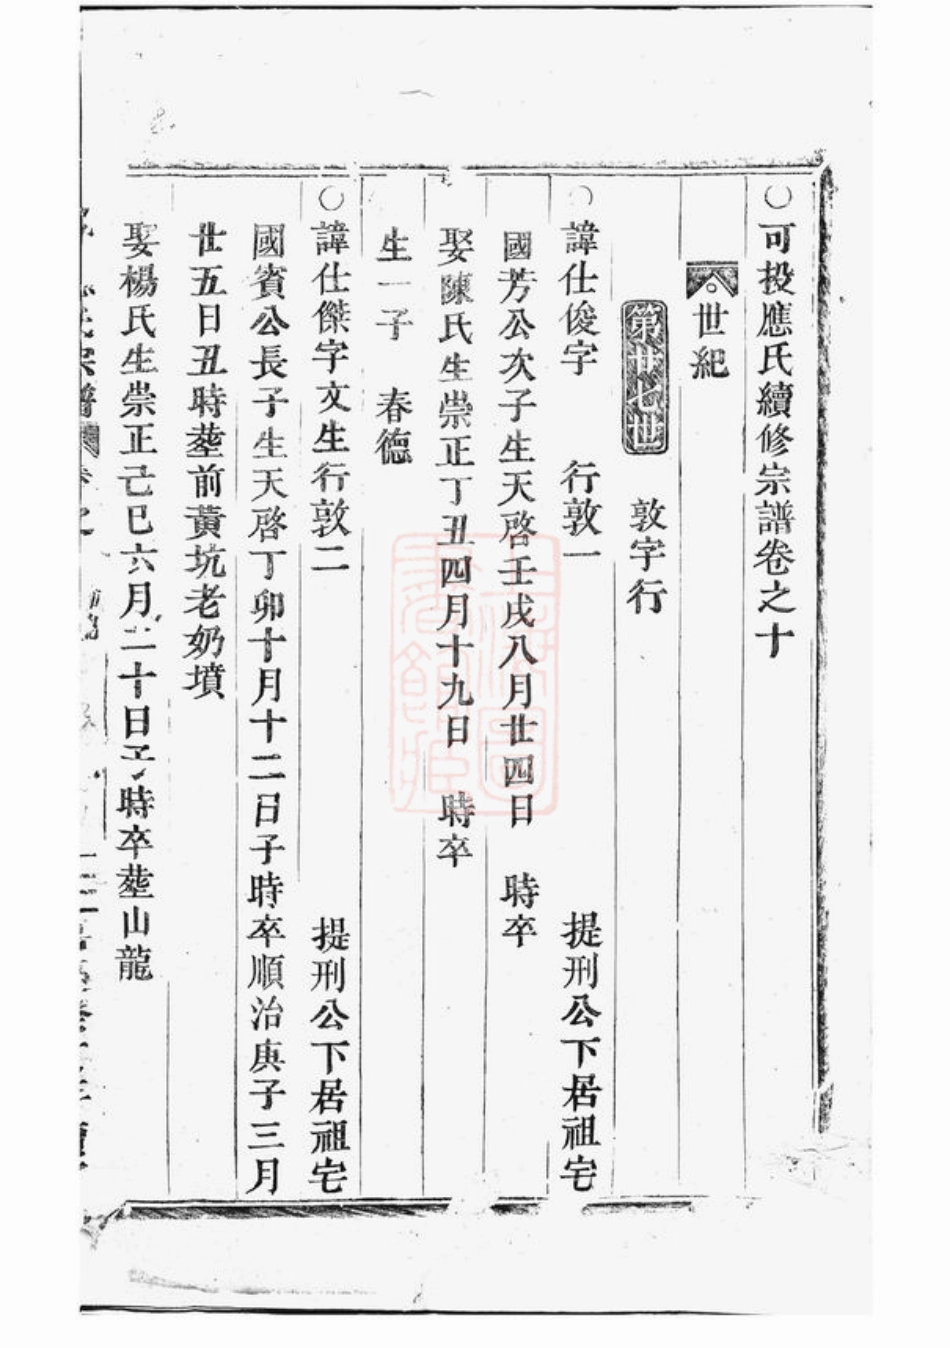 ○可投應氏續修宗譜卷之十
世紀
第廿七世 敦字行
○諱仕俊字 行敦一 提刑公下居祖宅
國芳公次子生天啓壬戌八月廿四日 時卒
娶陳氏生崇正丁丑四月十九日 時卒
生一子 春德
○諱仕傑字文生行敦二 提刑公下居祖宅
國賓公長子生天啓丁卯十月十二日子時卒順治庚子三月
廿五日丑時塟前黃坑老奶墳
娶楊氏生崇正己巳六月二十日子時卒塟山龍
氏宗譜